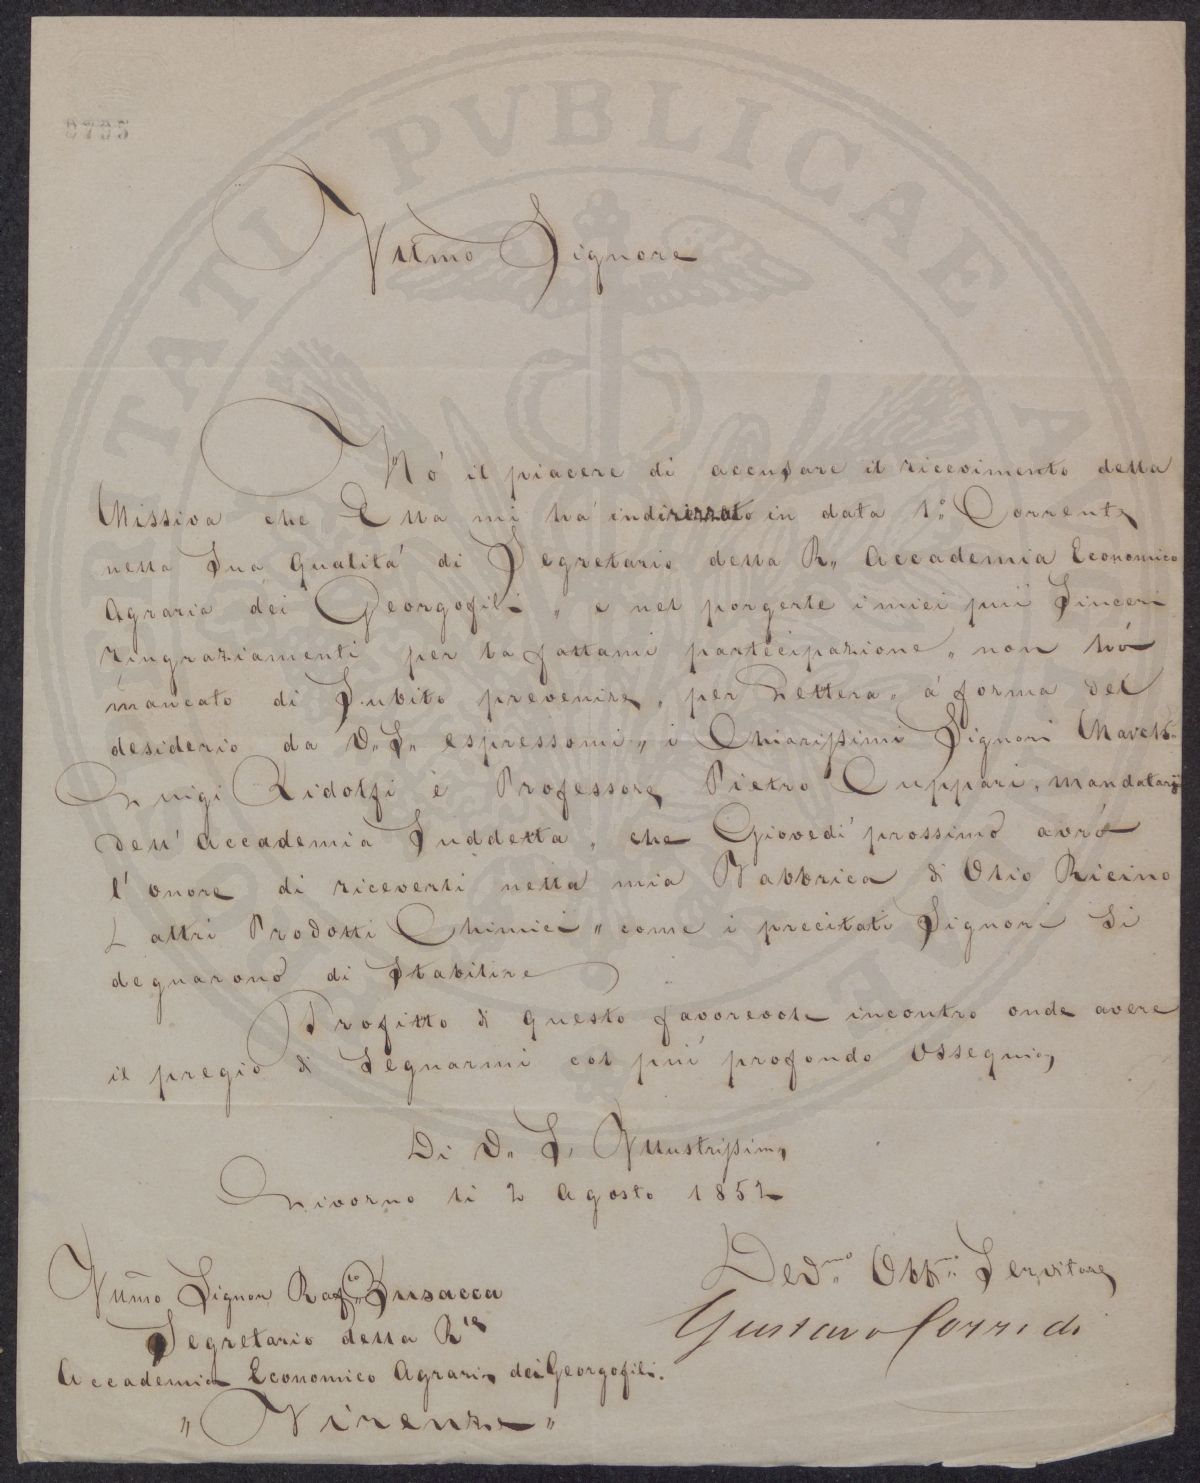 8795
PROSPERITATI PVBLICAE AVGENDAE
Illmo Signore
Hó il piacere di accusare il ricevimento della
Missiva che Ella mi há indirizzato in data 1.º Corrente
nella Sua Qualitá di Segretario della R,, Accademia Economico
Agraria dei Georgofili „ e nel porgerle i miei piú Sinceri
ringraziamenti per la fattami partecipazione „ non hó
mancato di Subito prevenire, per Lettera „ á forma del
desiderio da V,, S,, espressomi „ i Chiarissimi Signori March.
Luigi Ridolfi é Professore Pietro Cuppari, mandatarj
Dell' Accademia Suddetta, che Giovedí prossimo avró
l' onore di riceverli nella mia Fabbrica di Olio Ricino
altri Prodotti Chimici „ come i precitati Signori Si
degnarono di Stabilire
Profitto di questo favorevole incontro onde avere
il pregio di Segnarmi col piú profondo Ossequio,
Di V,, S, Illustrissima
Livorno li 2 Agosto 1852
Dev.mo Obb.mo Servitore
Gustavo Corridi
Illmo Signor Raf.lo Busacca
Segretario della R.le
Accademia Economico Agraria dei Georgofili.
„ Firenze „